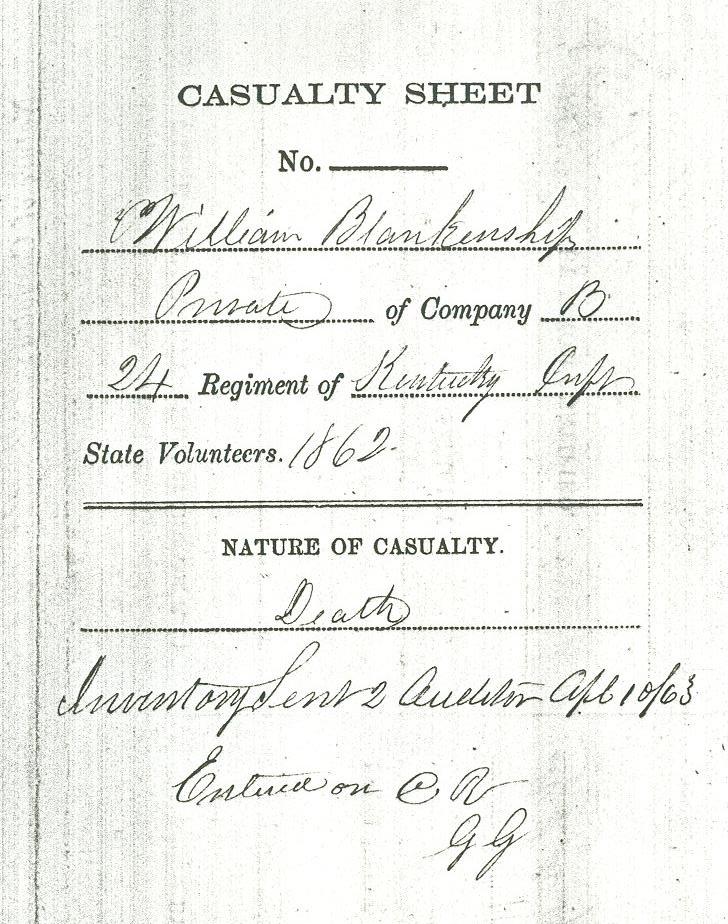 CASUALTY SHEET
No.
William Blankenship
Private of Company B
24 Regiment of Kentucky Inft
State Volunteers. 1862.
NATURE OF CASUALTY.
Death
Inventory Sent 2 Auditor Apl 10/63
Entered on C R
G G